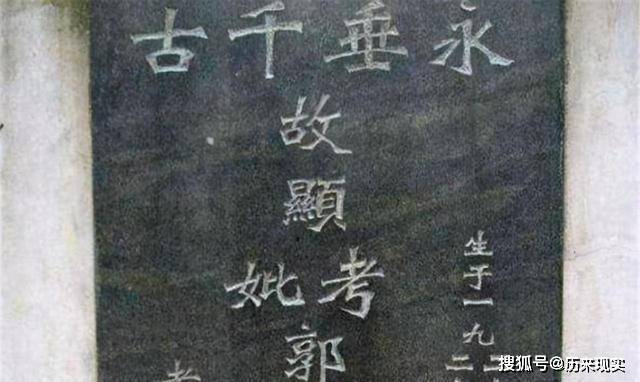 永垂千古
生于一九
故顯
考妣
郭
搜狐号@历来现实